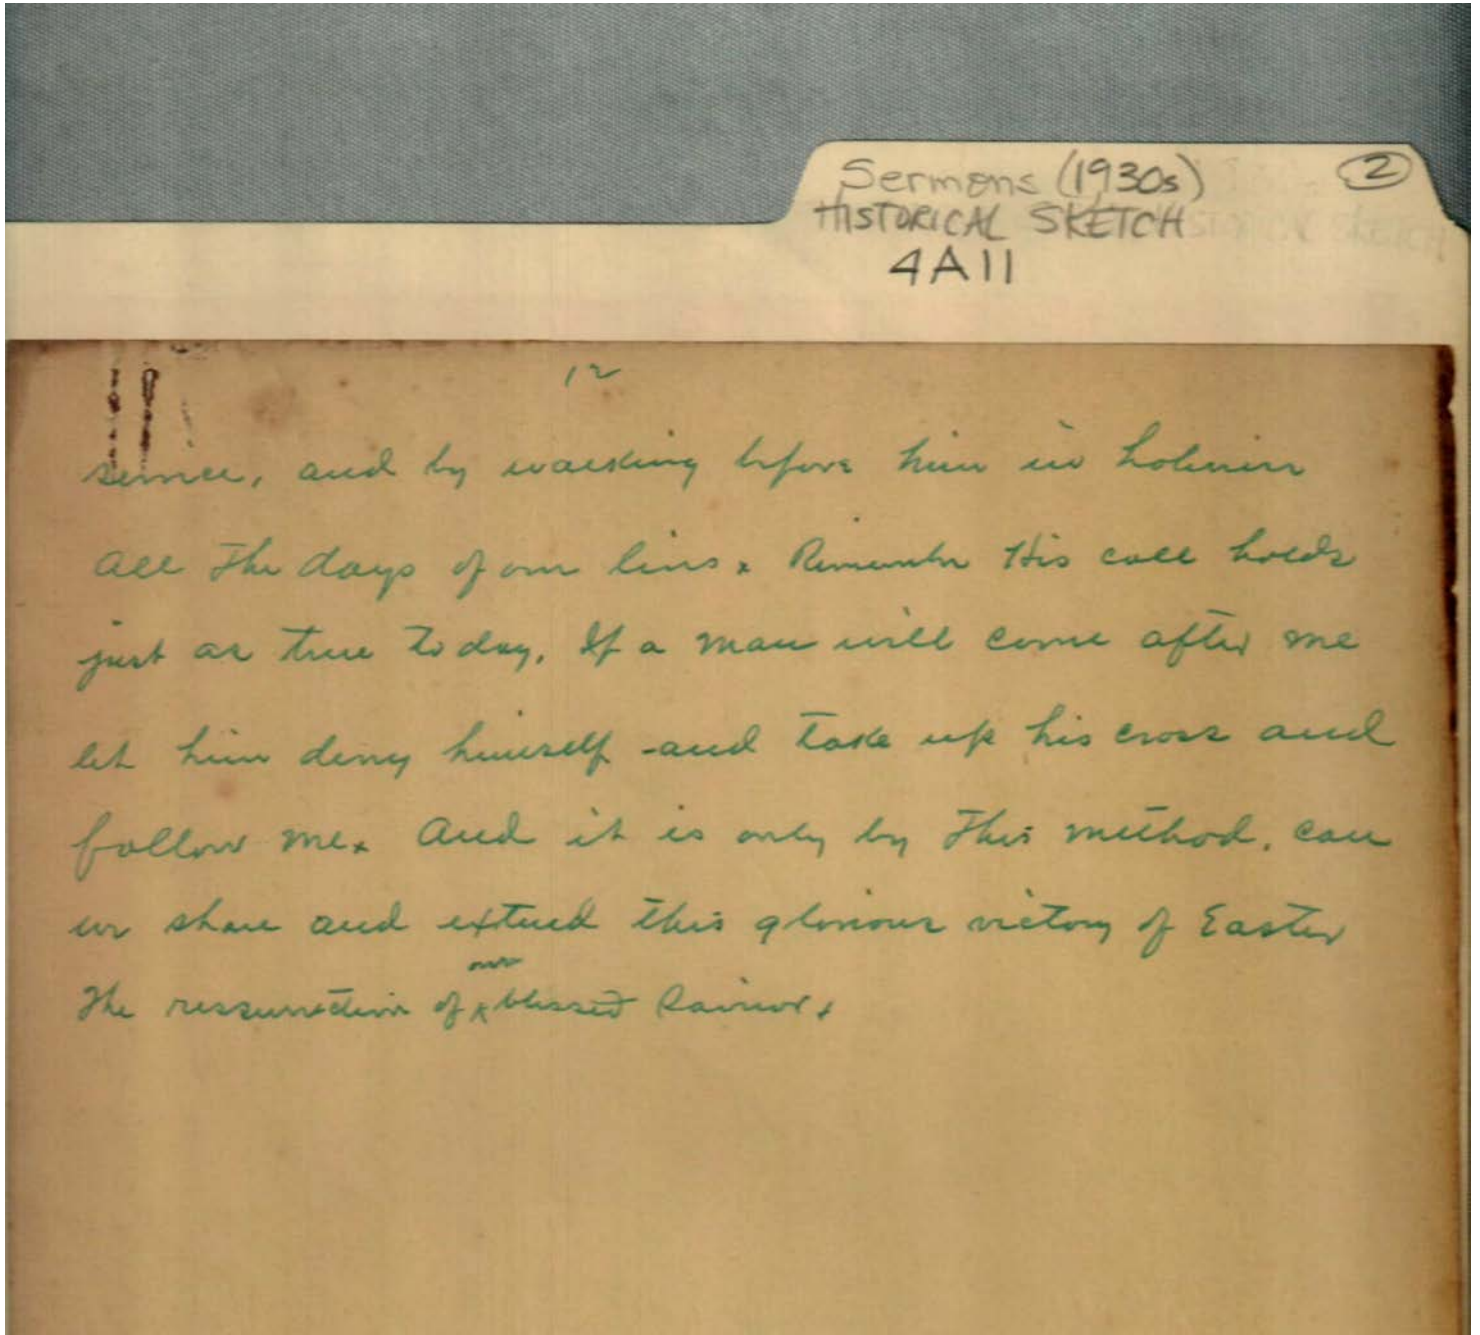 Sermons (1930s) 2
HISTORICAL SKETCH
4A11
12
service, and by walking before him in holiness
all the days of our lives. Remember His call holds
just as true today. If a man will come after me
let him deny himself and take up his cross and
follow me. And it is only by this method, can
we share and extend this glorious victory of Easter
our
The ressurection of blessed Savior.